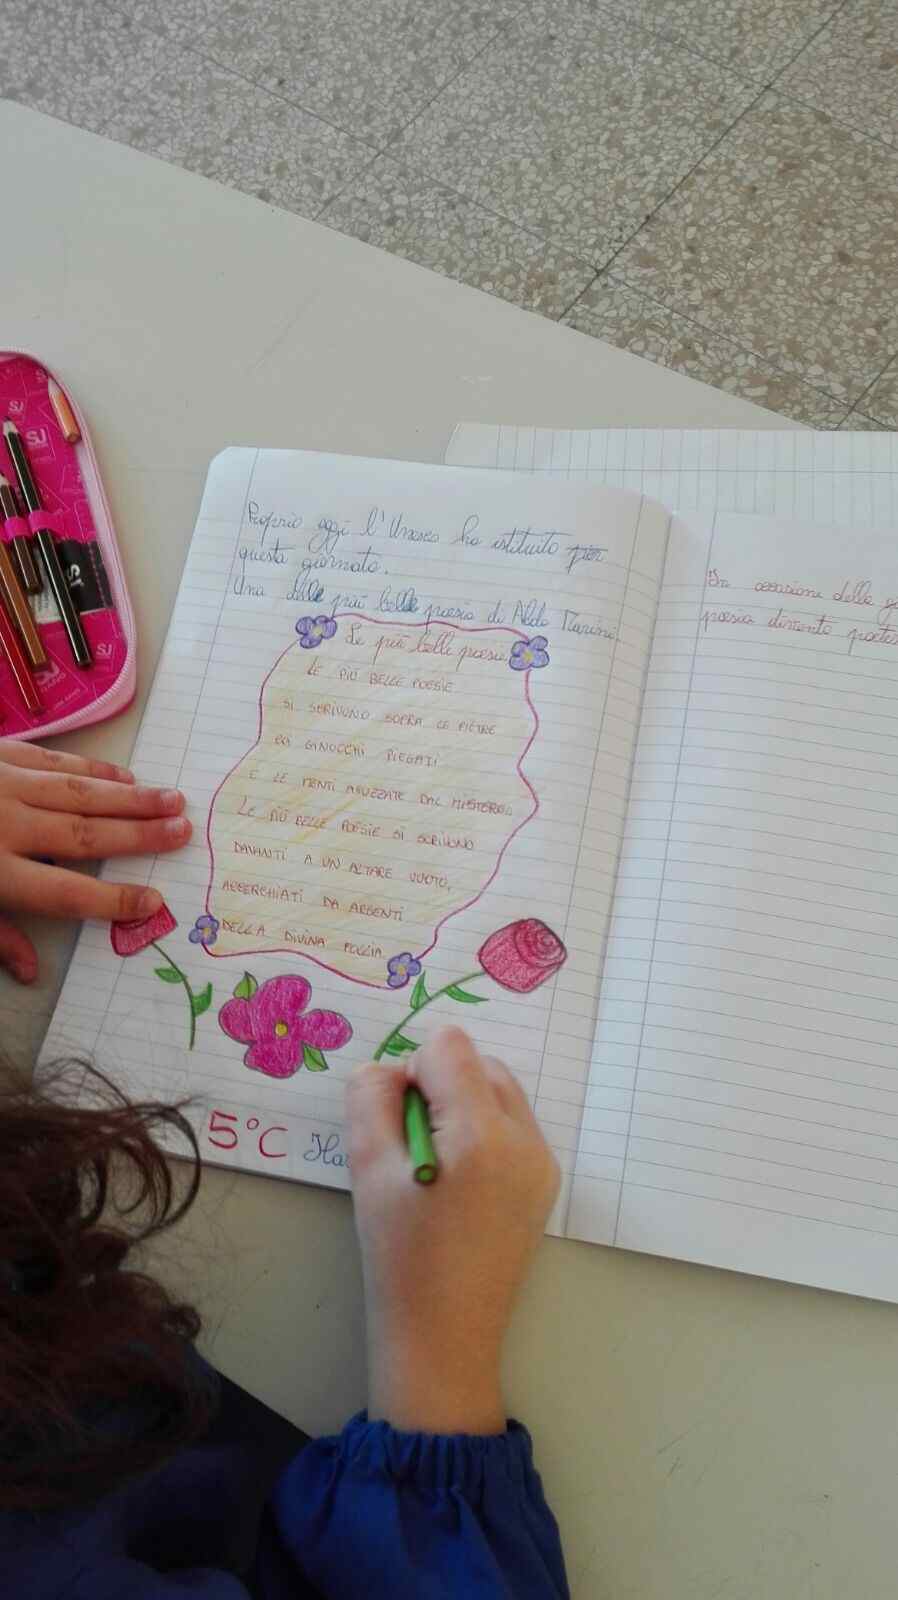 Proprio oggi l'Unesco ha istituito per
questa giornata.
Una delle più belle poesie di Aldo
Le più belle poesie
LE PIÙ BELLE POESIE
SI SCRIVONO SOPRA LE PIETRE
COI GINOCCHI PIEGATI
E LE MENTI AGUZZATE DAL MISTERO.
LE PIÙ BELLE POESIE SI SCRIVONO
DAVANTI A UN ALTARE VUOTO,
ACCERCHIATI DA ARGENTI
DELLA DIVINA FOLLIA
5°C
In occasione della g
poesia divento poetes
SJ
SJ
SJ